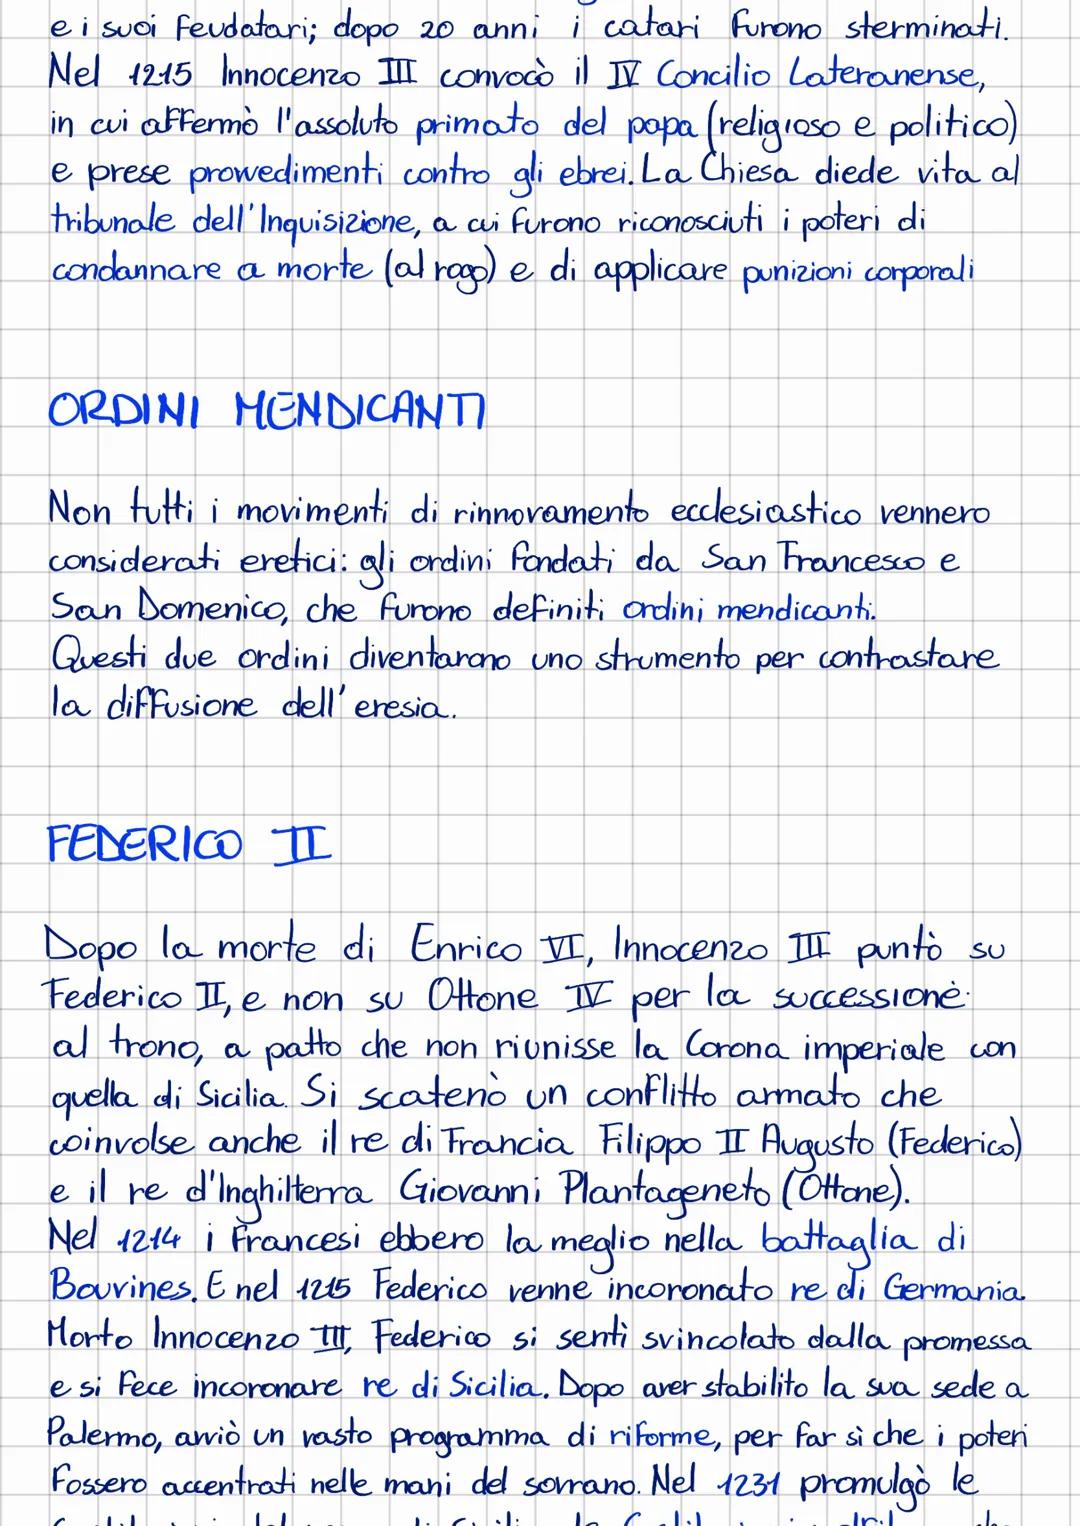 e i suoi feudatari; dopo 20 anni i catari furono sterminati.
Nel 1215 Innocenzo III convocò il IV Concilio Lateranense,
in cui affermò l'assoluto primato del papa (religioso e politico)
e prese provvedimenti contro gli ebrei. La Chiesa diede vita al
tribunale dell'Inquisizione, a cui furono riconosciuti i poteri di
condannare a morte (al rogo) e di applicare punizioni corporali
ORDINI MENDICANTI
Non tutti i movimenti di rinnovamento ecclesiastico vennero
considerati eretici: gli ordini fondati da San Francesco e
San Domenico, che furono definiti ordini mendicanti.
Questi due ordini diventarono uno strumento per contrastare
la diffusione dell'eresia.
FEDERICO II
Dopo la morte di Enrico VI, Innocenzo III puntò su
Federico II, e non su Ottone IV per la successione
al trono, a patto che non riunisse la Corona imperiale con
quella di Sicilia. Si scatenò un conflitto armato che
coinvolse anche il re di Francia Filippo II Augusto (Federico)
e il re d'Inghilterra Giovanni Plantageneto (Ottone).
Nel 1214 i francesi ebbero la meglio nella battaglia di
Bouvines. E nel 1215 Federico venne incoronato re di Germania.
Morto Innocenzo III, Federico si sentì svincolato dalla promessa
e si fece incoronare re di Sicilia. Dopo aver stabilito la sua sede a
Palermo, avviò un vasto programma di riforme, per far sì che i poteri
fossero accentrati nelle mani del sovrano. Nel 1231 promulgò le